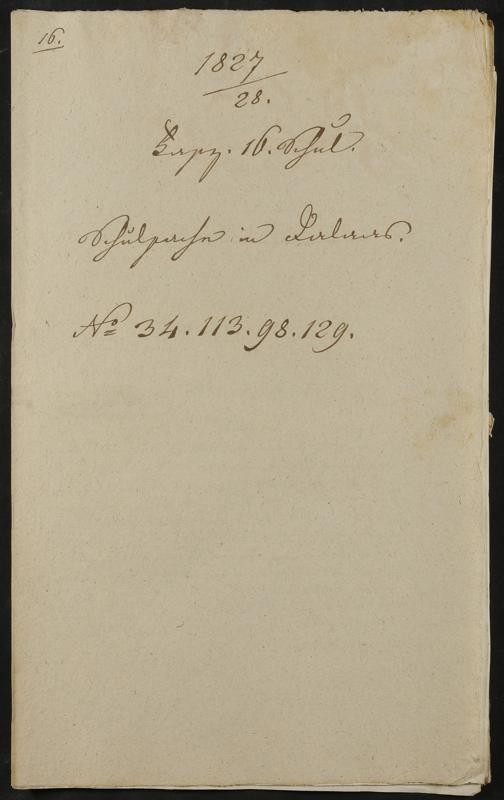 16.
1827
28.
Fasz. 16. Schul.
Schulsache in Dalaas.
No 34. 113. 98. 129.